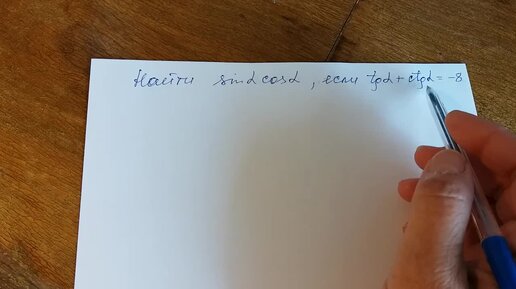 Найти sinα cosα, если tgα + ctgα = -8